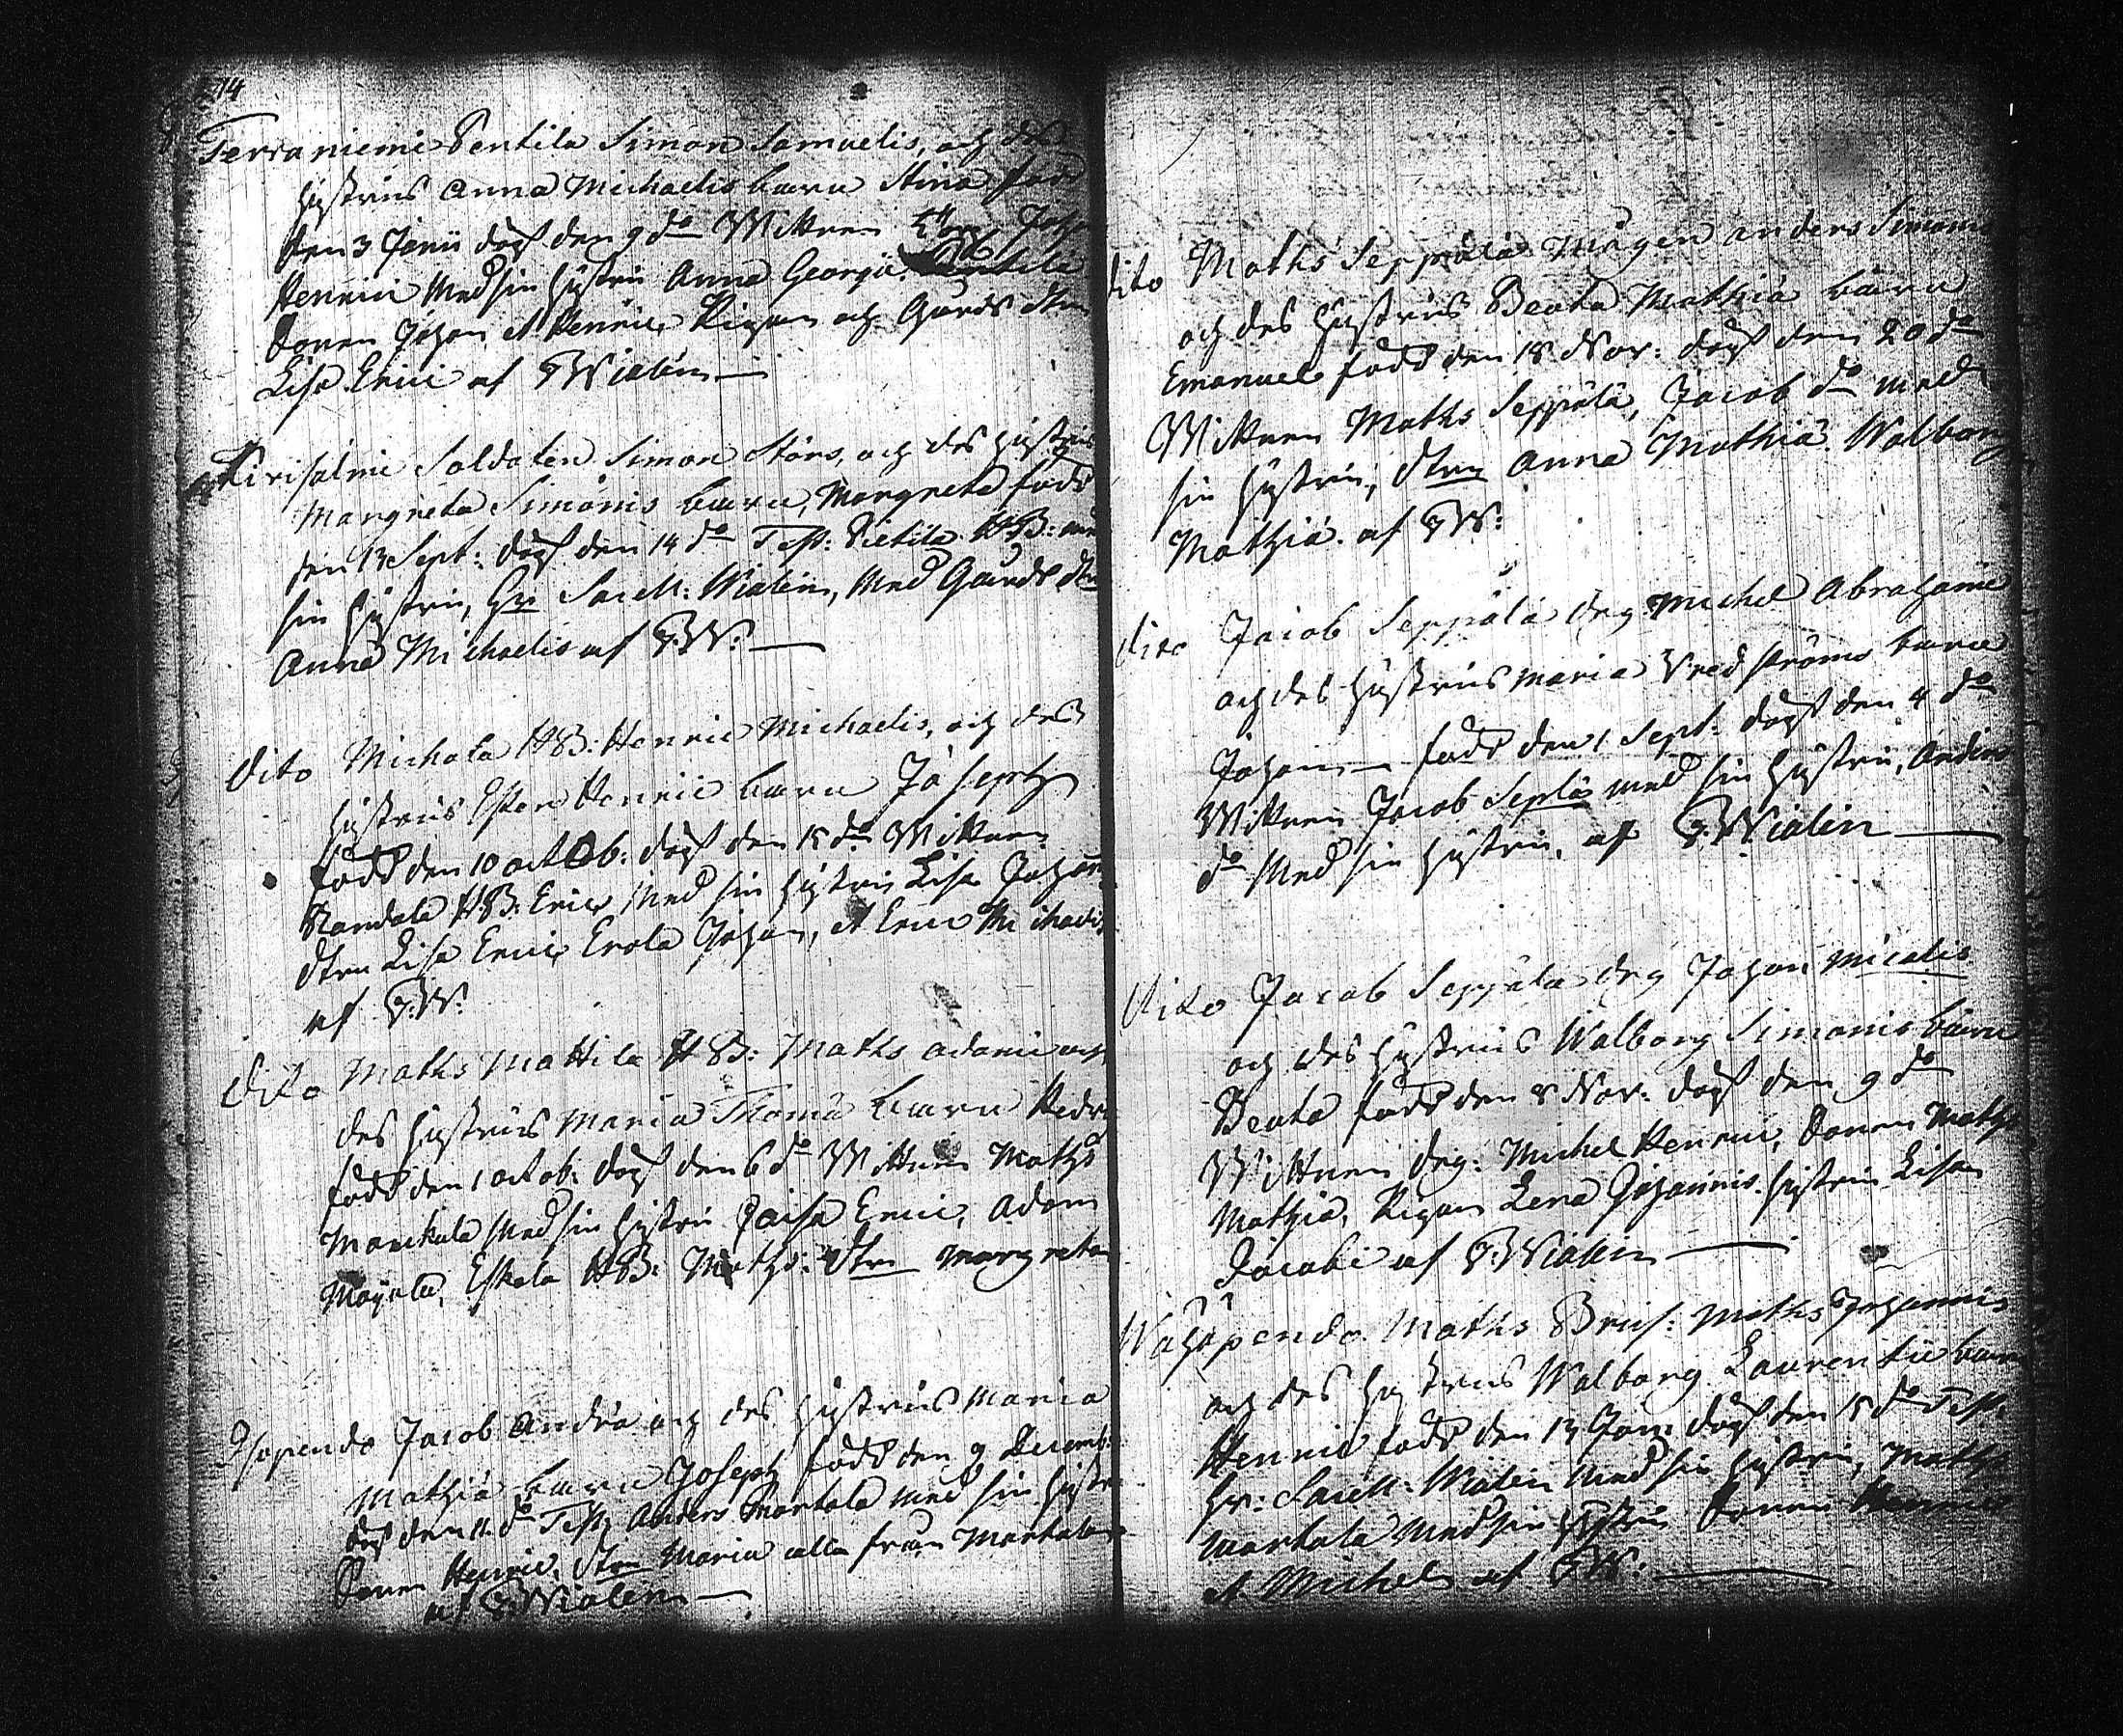 74
Terraniemi Pentila Simon Samuelis, och des
hustrus Anna Michaelis barn Stina född
den 3 Junii döpt den 9 do Wittnen
Henrici med sin hustru Anna Georgii
Sonen Johan et Henric, Pigan och Gårds dtren
Lisa Erici af G Wialin
Kirisalmi Soldaten Simon Störs, och des hustrus
Margreta Simonis barn, Margreta född
den 13 Sept: döpt den 14 do Test: Pietila HB: med
sin hustru, Hr Sacell: Wialin, med Gårds dtren
Anna Michaelis af G.W:
dito Michala HB: Henric Michaelis, och des
hustrus Ester Henrici barn Joseph
född den 10 octob: döpt den 15 do Wittnen
Randala HB: Eric med sin hustru Lisa Johan
dtren Lisa Erici, Erola Johan, et Eric Michaelis
af G.W:
dito Maths Mattila HB: Maths Adami och
des hustrus Maria Thomæ barn Hedvi
född den 1 octob: döpt den 6 do Wittnen Maths
Mankala med sin hustru Caisa Erici, Adam
Mäyrla, Eskola HB: Maths: dtren Margreta
Isopendo Jacob Andræ och des hustrus Maria
Mathiæ barn Joseph född den 9 Decemb:
döpt den 11 do Test: Anders Martala med sin hustru
Sonen Henric, dtren Maria alla från Martala
af G.Wialin
dito Maths Seppälä Mågen Anders Simonis
och des hustrus Beata Mathiæ barn
Emanuel född den 18 Nov: döpt den 20 do
Wittnen Maths Seppälä, Jacob do med
sin hustru, dtren Anna Mathiæ Walborg
Mathiæ af G.W:
dito Jacob Seppälä drg Michel Abrahami
och des hustrus Maria Vredströms barn
Johan född den 1 Sept: döpt den 4 do
Wittnen Jacob Seplä med sin hustru, Anders
do med sin hustru, af G.Wialin
dito Jacob Seppälä drg Johan Micalis
och des hustrus Walborg Simonis barn
Beata född den 8 Nov: döpt den 9 do
Wittnen drg: Michel Henrici, Sonen Maths
Mathiæ, Pigan Lena Johannis hustrun Lisa
Jacobi af G.Wialin
Wähäpendo Maths Brus: Maths Johannis
och des hustrus Walborg Laurentii barn
Henric född den 13 Jan: döpt den 15 do Test:
Hr: Sacell: Wialin med sin hustru, Maths
Martala med sin hustru Sonen Henric
et Michel af G.W: